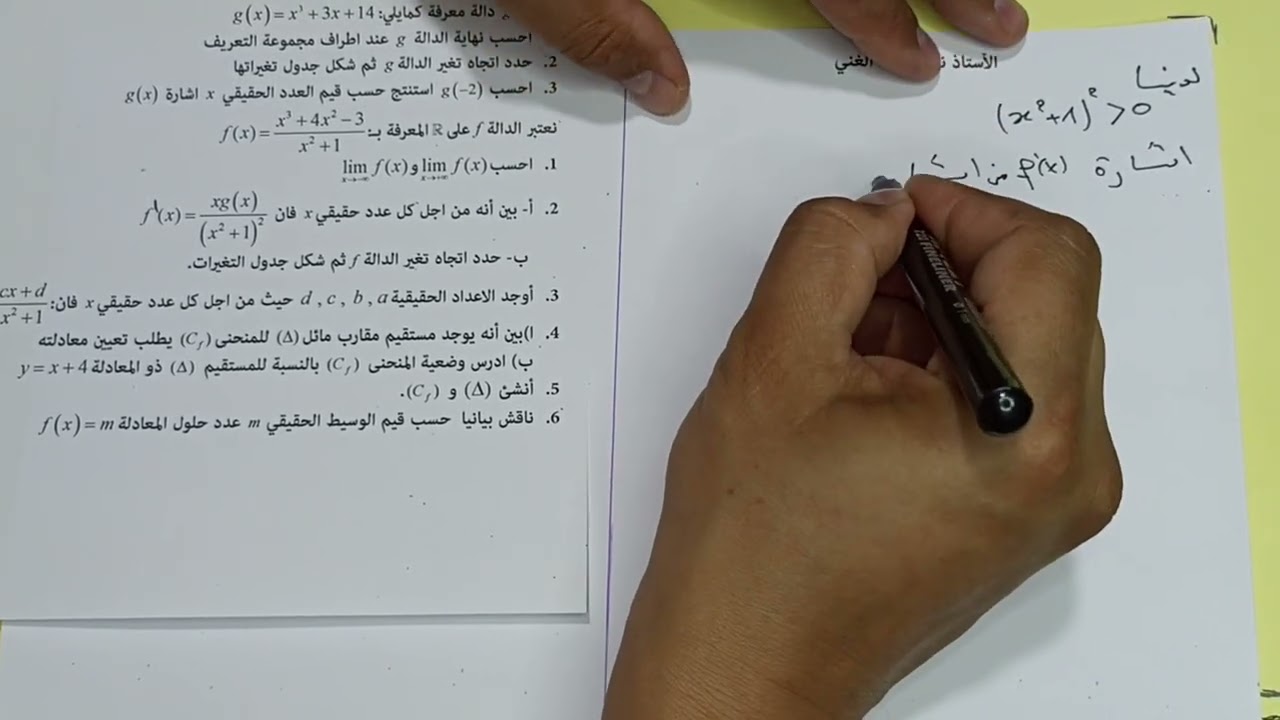 دالة معرفة كمايلي: g(x) = x³ + 3x + 14
احسب نهاية الدالة g عند اطراف مجموعة التعريف
2. حدد اتجاه تغير الدالة g ثم شكل جدول تغيراتها
3. احسب g(−2) استنتج حسب قيم العدد الحقيقي x اشارة g(x)
نعتبر الدالة f على ℝ المعرفة بـ: f(x) = (x³ + 4x² − 3)/(x² + 1)
1. احسب lim f(x) x→+∞ و lim f(x) x→−∞
2. أ- بين أنه من اجل كل عدد حقيقي x فان f'(x) = xg(x)/(x² + 1)²
ب- حدد اتجاه تغير الدالة f ثم شكل جدول التغيرات.
3. أوجد الاعداد الحقيقية a , b , c , d حيث من اجل كل عدد حقيقي x فان: (cx + d)/(x² + 1)
4. ا)بين أنه يوجد مستقيم مقارب مائل (Δ) للمنحنى (C_f) يطلب تعيين معادلته
ب) ادرس وضعية المنحنى (C_f) بالنسبة للمستقيم (Δ) ذو المعادلة y = x + 4
5. أنشئ (Δ) و (C_f).
6. ناقش بيانيا حسب قيم الوسيط الحقيقي m عدد حلول المعادلة f(x) = m
الأستاذ الغني
لدينا
(x² + 1)² > 0
اشارة f'(x) من